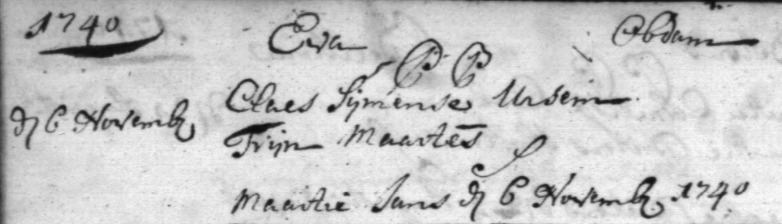 1740 Eva Obdam
P P
Claes Sijmense Ursem
dj 6 Novemb,
Trijn Maartēs
Maartie Jans dj 6 Novemb, 1740